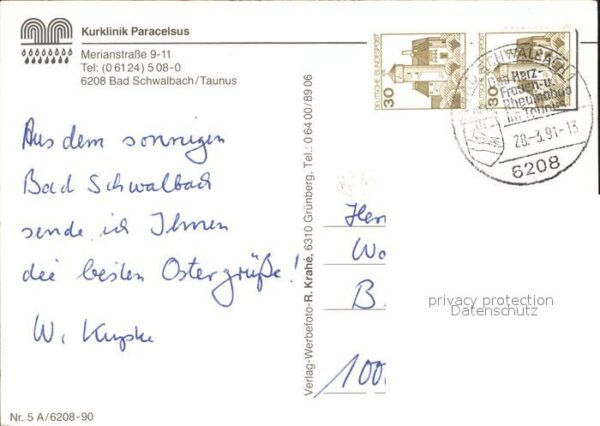 Kurklinik Paracelsus
Merianstraße 9-11
Tel: (0 61 24) 5 08-0
6208 Bad Schwalbach/Taunus
Aus dem sonnigen
Bad Schwalbach
sende ich Ihnen
die besten Ostergrüße!
W.
Nr. 5 A/6208-90
Verlag-Werbefoto-R. Krahé, 6310 Grünberg. Tel.: 0 64 00/89 06
DEUTSCHE BUNDESPOST
30
30
SCHWALBACH
Das Herz-
Frauen-u.
Rheumabad
im Taunus
28.-3.91-13
6208
Her
Wo
B
100
privacy protection
Datenschutz